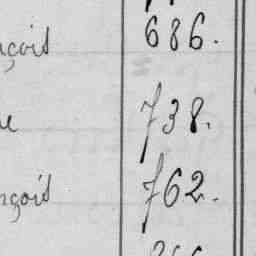 nçois 686.
738.
nçois 762.